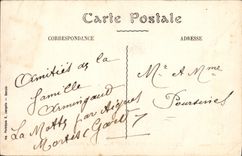 Carte Postale
CORRESPONDANCE
ADRESSE
Amitiés de la
famille
Armingaud
La Motte par Aigues
Mortes Gard
Mr & Mme